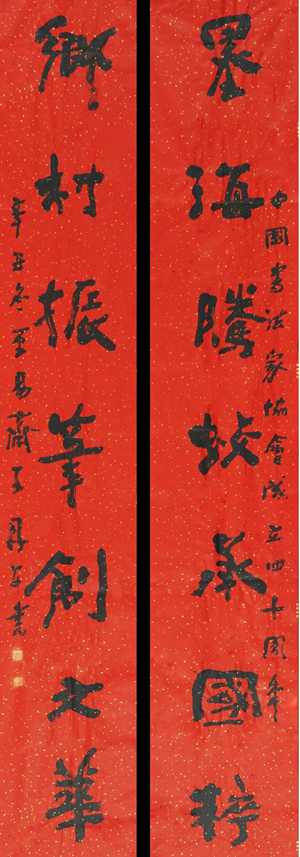 中國書法家協會成立四十周年
墨海騰蛟承國粹
鄉村振筆創文華
辛丑冬至易齋王書